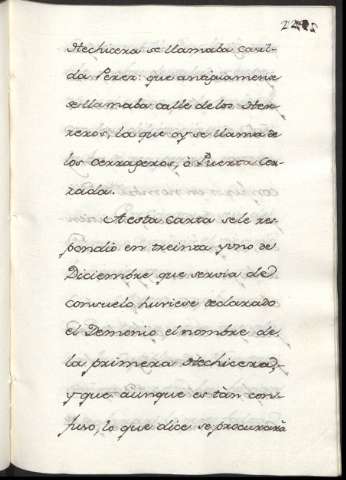 Hechicera se llamaba Casil-
da Perez: que antiguamente
se llamaba calle de los Her-
reros, la que oy se llama de
los Cerrageros, ò Puerta Cer-
rada.
A esta Carta se le res-
pondiò en treinta y uno de
Diciembre que servia de
consuelo huviese declarado
el Demonio el nombre de
la primera Hechicera,
y que aunque es tàn con-
fuso, lo que dice se procurarà